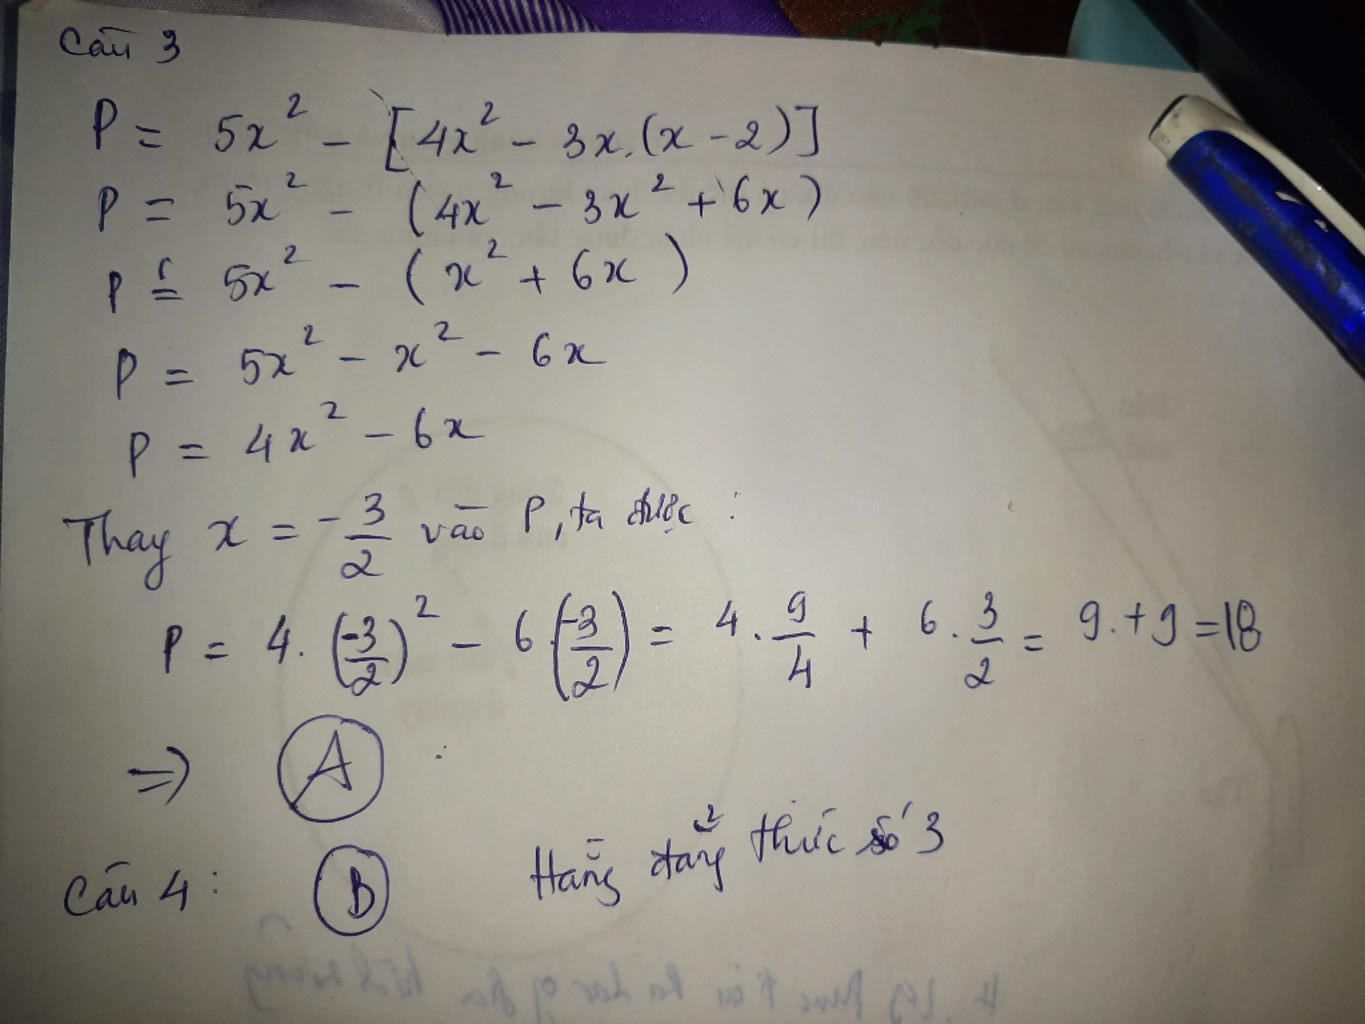 Câu 3
P = 5x² - [4x² - 3x.(x - 2)]
P = 5x² - (4x² - 3x² + 6x)
P = 5x² - (x² + 6x)
P = 5x² - x² - 6x
P = 4x² - 6x
Thay x = -3/2 vào P, ta được :
P = 4.(-3/2)² - 6(-3/2) = 4.9/4 + 6.3/2 = 9.+9=18
=> A
Câu 4 : B Hằng đẳng thức số 3